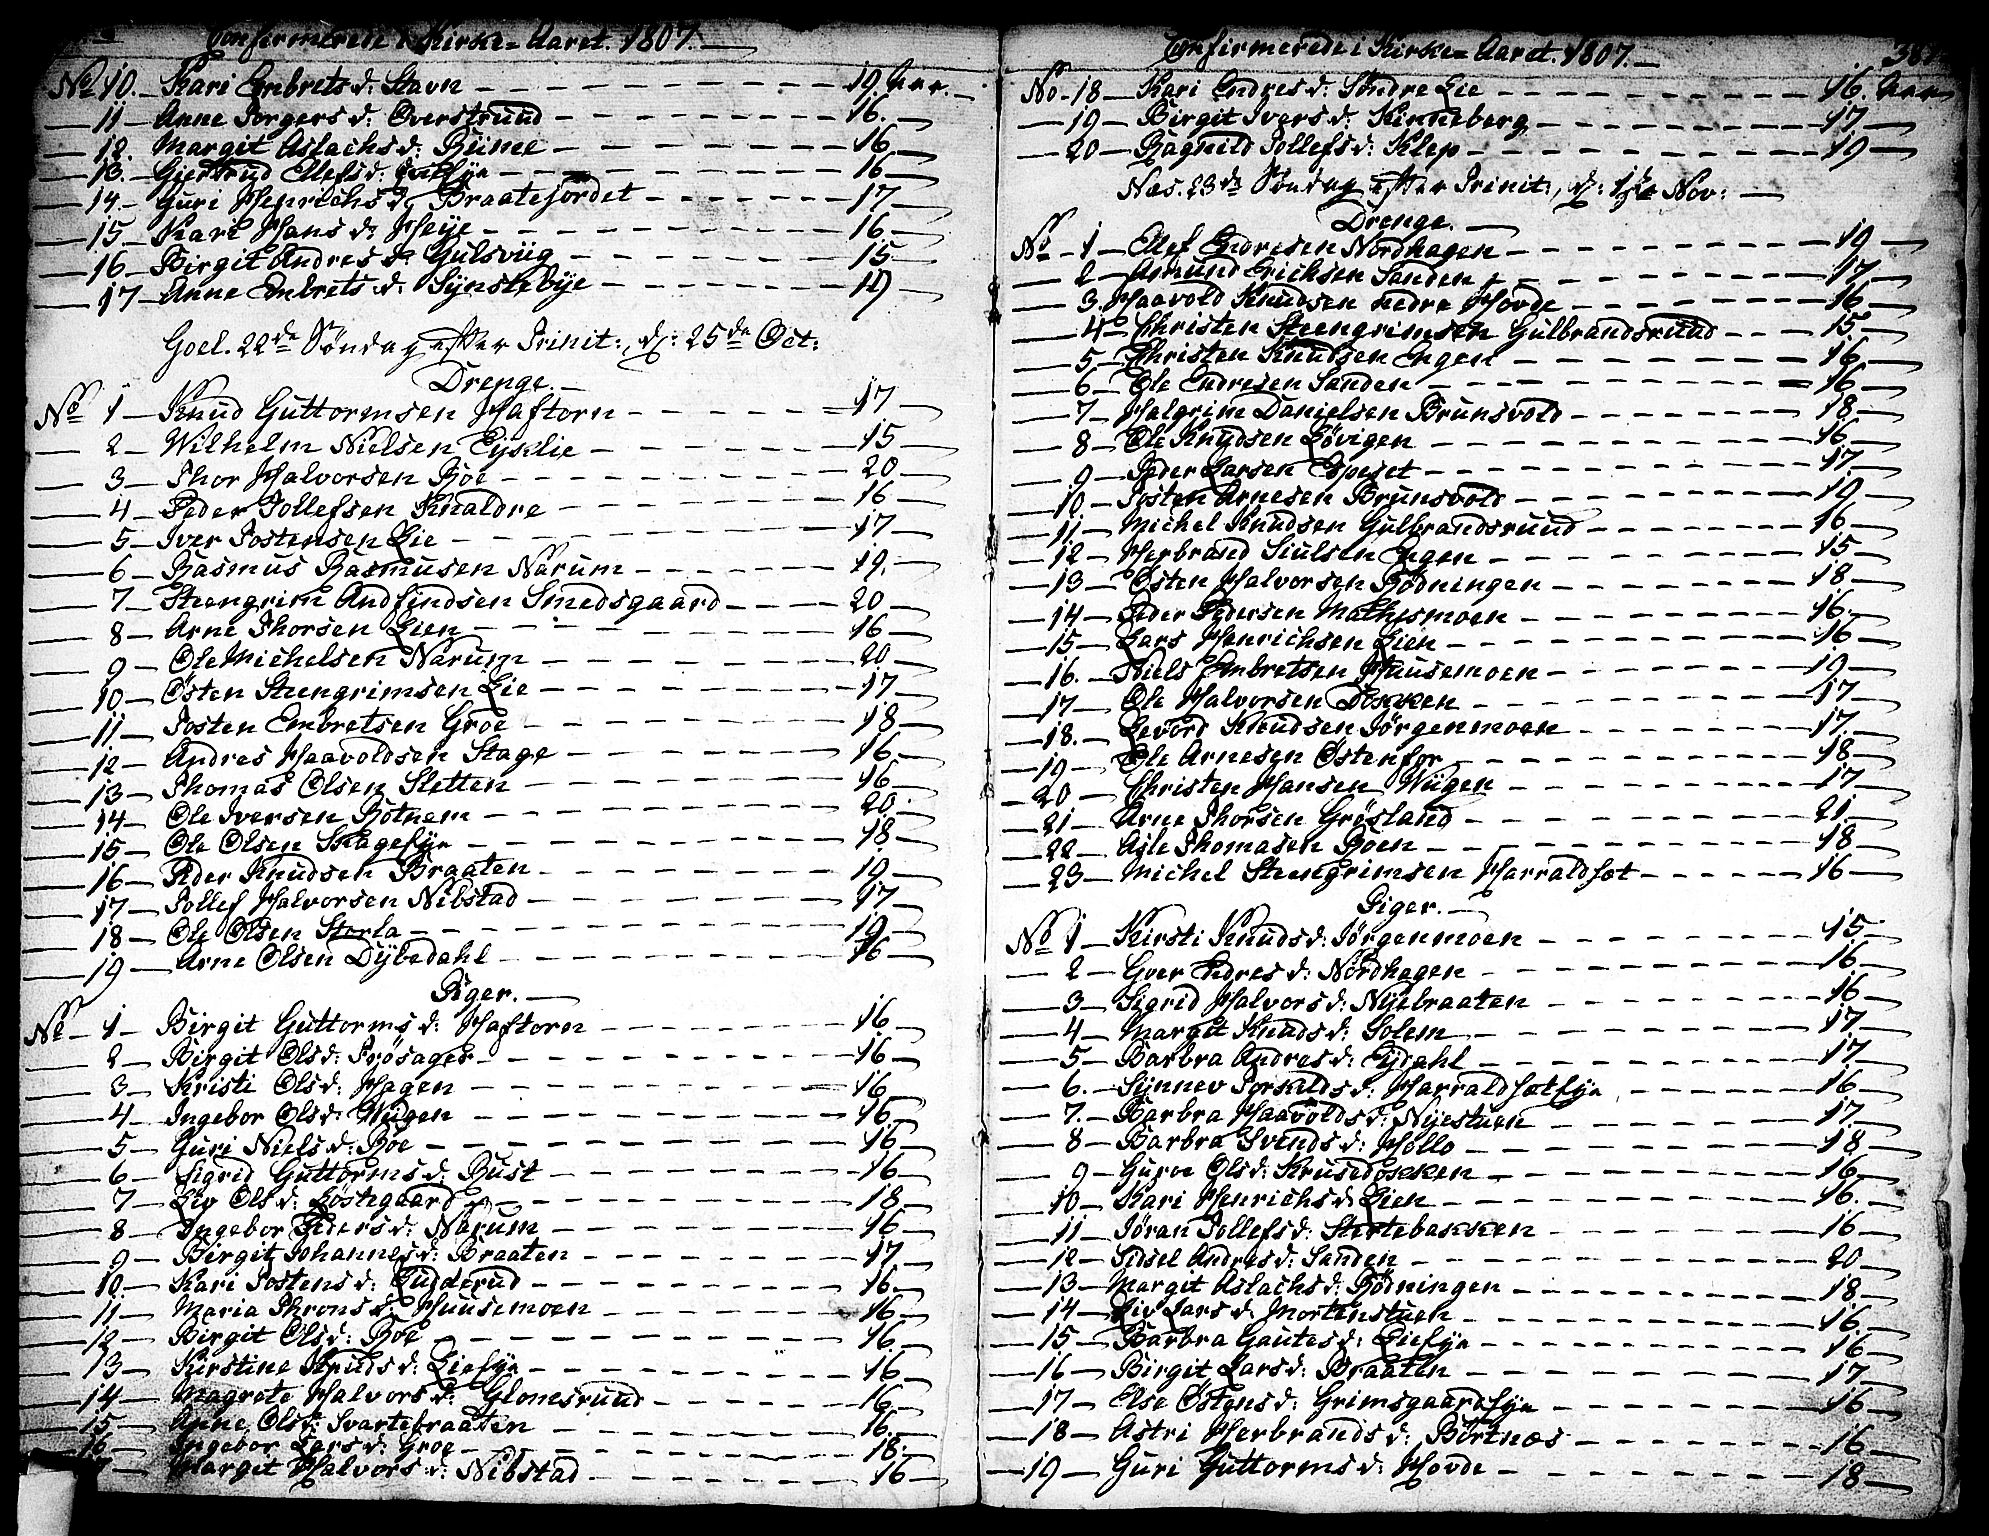 Confirmerede i Kirke-Aaret. 1807.
No 10. Kari Embrets d: Stavn 19. Aar.
11 Anne Torgers d: Overstruud 16.
12. Margit Aslachs d: Riime 16
13. Giertrud Ellefs d: 16
14. Guri Henrichs d: Braatefordet 17
15 Kari Hans d: Heye 16
16 Birgit Andres d: Gulsviig 15
17 Anne Embrets d: Synstebye 19
Goel. 22de Søndag efter Trinit:, d: 25de Oct:
Drenge.
No 1 Knud Guttormsen Haftorn 17
2 Wilhelm Nielsen Eyklie 15
3 Thor Halvorsen Boe 20
4 Peder Tollefsen Knaldre 16
5 Iver Tostensen Lie 17
6 Rasmus Rasmusen Narum 19.
7 Steengrim Andfindsen Smedsgaard 20
8 Arne Thorsen Lien 16
9 Ole Michelsen Narum 20
10 Østen Steengrimsen Lie 17
11 Tosten Embretsen Groe 18
12 Andres Haavoldsen Stage 16
13 Thomas Olsen Sletten 16
14 Ole Iversen Botnem 20
15 Ole Olsen Skageeye 18
16 Peder Knudsen Braaten 19
17 Tollef Halvorsen Nibstad 17
18 Ole Olsen Storla 19
19 Arne Olsen Dybedahl 16
Piger.
No 1 Birgit Guttorms d: Haftorn 16
2 Birgit Ols d: Trøsager 16
3 Kristi Ols d: Hagen 16
4 Ingebor Ols d: Wiigen 16
5 Guri Niels d: Boe 16
6 Sigrid Guttorms d: Rust 16
7 Liv Ols d: Løstegaard 18
8 Ingebor Peders d: Narum 16
9 Birgit Johannes d: Braaten 17
10. Kari Tostens d: Gudderud 16
11 Maria Throns d: Huusemoen 16
12 Birgit Ols d: Boe 16
13 Kirstine Knuds d: Lieeye 16
14 Magrete Halvors d: Glomsruud 16
15 Anne Ols d: Svartebraaten 16
16 Ingebor Lars d: Groe 18
17 Margit Halvors d: Nibstad 16
Confirmerede i Kirke-Aaret. 1807.
No 18 Kari Endres d: Søndre Lie 16. Aar
19 Birgit Ivers d: Kinneberg 17
20 Ragnild Tollefs d: Klep 19
Næs. 23de Søndag efter Trinit:, d: Nov:
Drenge.
No 1 Elef Endresen Nordhagen 19
2 Asmund Erichsen Sanden 17
3. Haavold Knudsen nedre Hovde 16
4 Christen Steengrimsen Gulbrandsruud 15
5 Christen Knudsen Engen 16
6 Ole Endresen Sanden 16
7 Halgrim Danielsen Brunsvold 18
8 Ole Knudsen Løvigen 16
9 Peder Larsen Espeset 17
10 Tosten Arnesen Brunsvold 19
11 Michel Knudsen Gulbrandsruud 16
12 Herbrand Siulsen Engen 15
13 Østen Halvorsen Rødningen 18
14 Peder Pedersen Mathismoen 16
15 Lars Henrichsen Lien 16
16. Niels Embretsen Huusemoen 19
17 Ole Halvorsen Dokken 17
18. Levord Knudsen Jørgenmoen 17
19 Ole Arnesen Østenfor 18
20 Christen Hansen Wiigen 17
21 Arne Thorsen Grøsland 21
22 Asle Thomasen Roen 18
23 Michel Steengrimsen Harraldset 16
Piger.
No 1 Kirsti Knuds d: Jørgenmoen 15
2 Gver Endres d: Nordhagen 16
3 Sigrid Halvors d: Nyebraaten 16
4 Margit Knuds d: Solem 17
5 Barbra Andres d: Eydahl 17
6. Synnev Torkilds d: Harraldseteye 16
7. Barbra Haavolds d: Nyestuen 17
8 Barbra Svends d: Hollo 18
9 Guroe Ols d: Krusedokken 16
10 Kari Henrichs d: Lien 16.
11 Jøran Tollefs d: Stertebakken 16
12 Sidsel Andres d: Sanden 20
13 Margit Aslachs d: Rødningen 18
14 Liv Lars d: Mortenstuen 16
15 Barbra Gautes d: Lieeye 16
16 Birgit Lars d: Braaten 17
17 Else Østens d: Grimsgaardseye 16
18 Astri Herbrands d: Bortnæs 16
19 Guri Guttorms d: Hovde 18